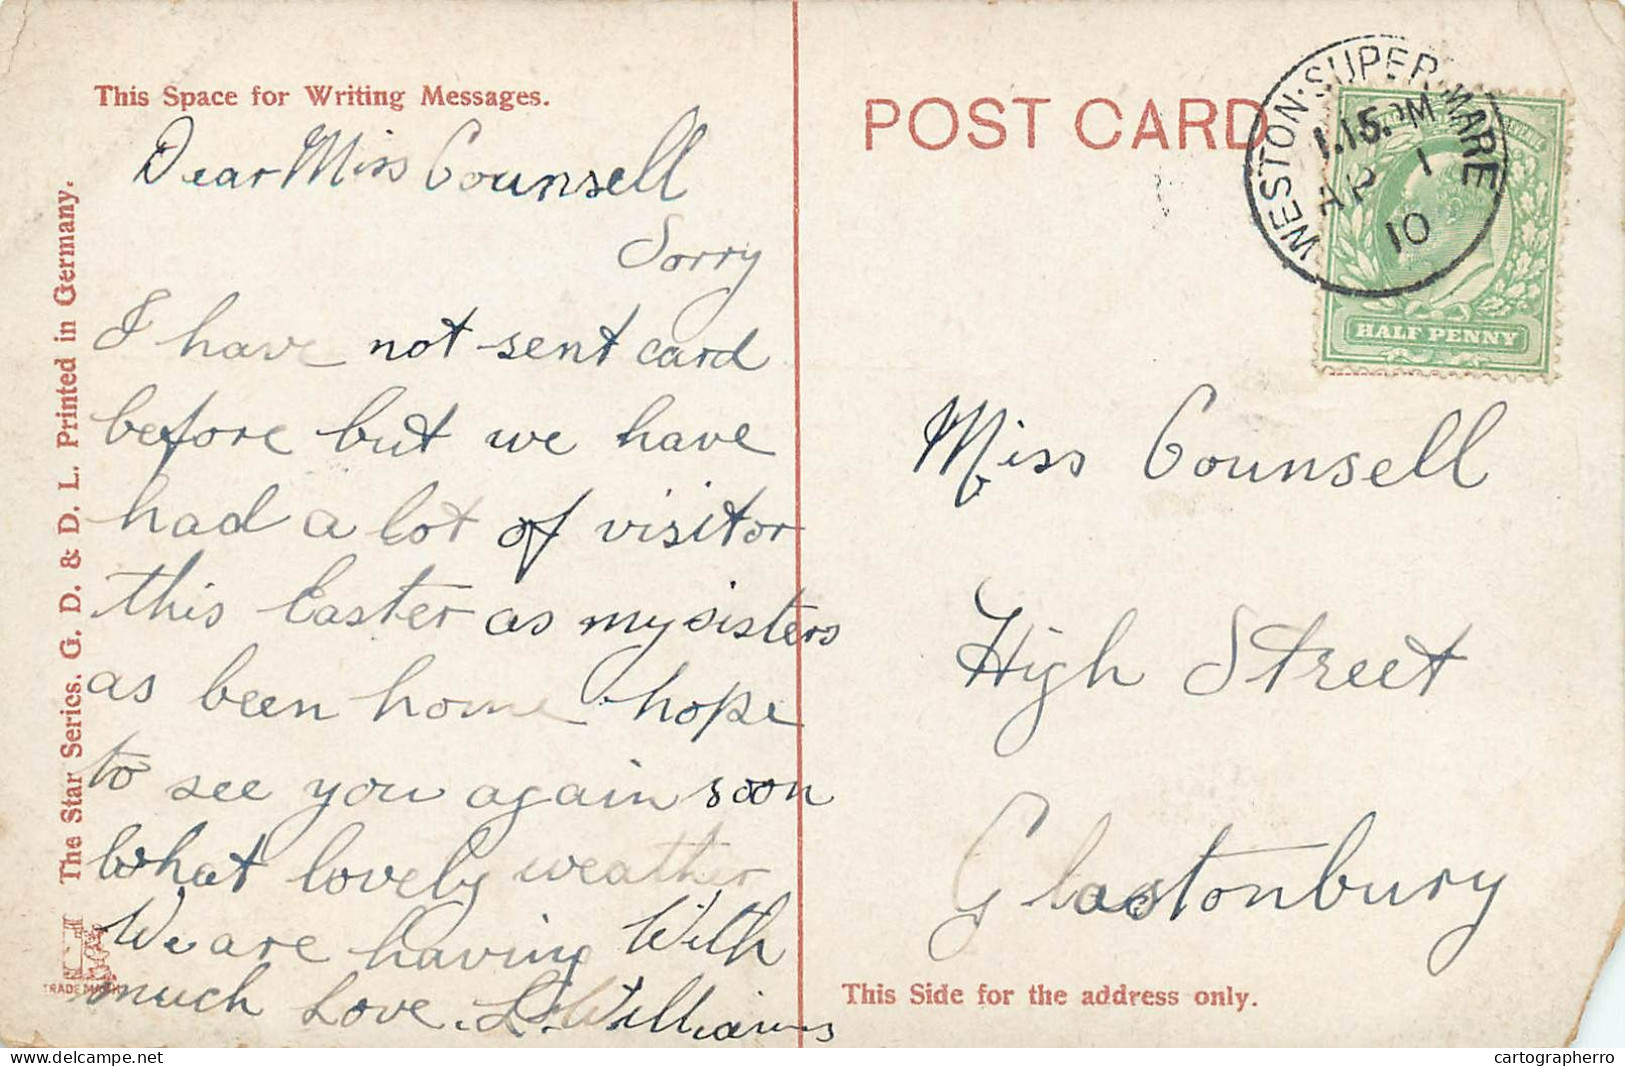 This Space for Writing Messages.
Dear Miss Counsell
Sorry
I have not sent card
before but we have
had a lot of visitor
this Easter as my sisters
as been home hope
to see you again soon
What lovely weather
We are having With
much Love. L. Williams
The Star Series. G. D. & D. L. Printed in Germany.
TRADE MARK
POST CARD
WESTON·SUPER·MARE
1.15.PM
AP 1
10
HALF PENNY
Miss Counsell
High Street
Glastonbury
This Side for the address only.
delcampe.net
cartographerro